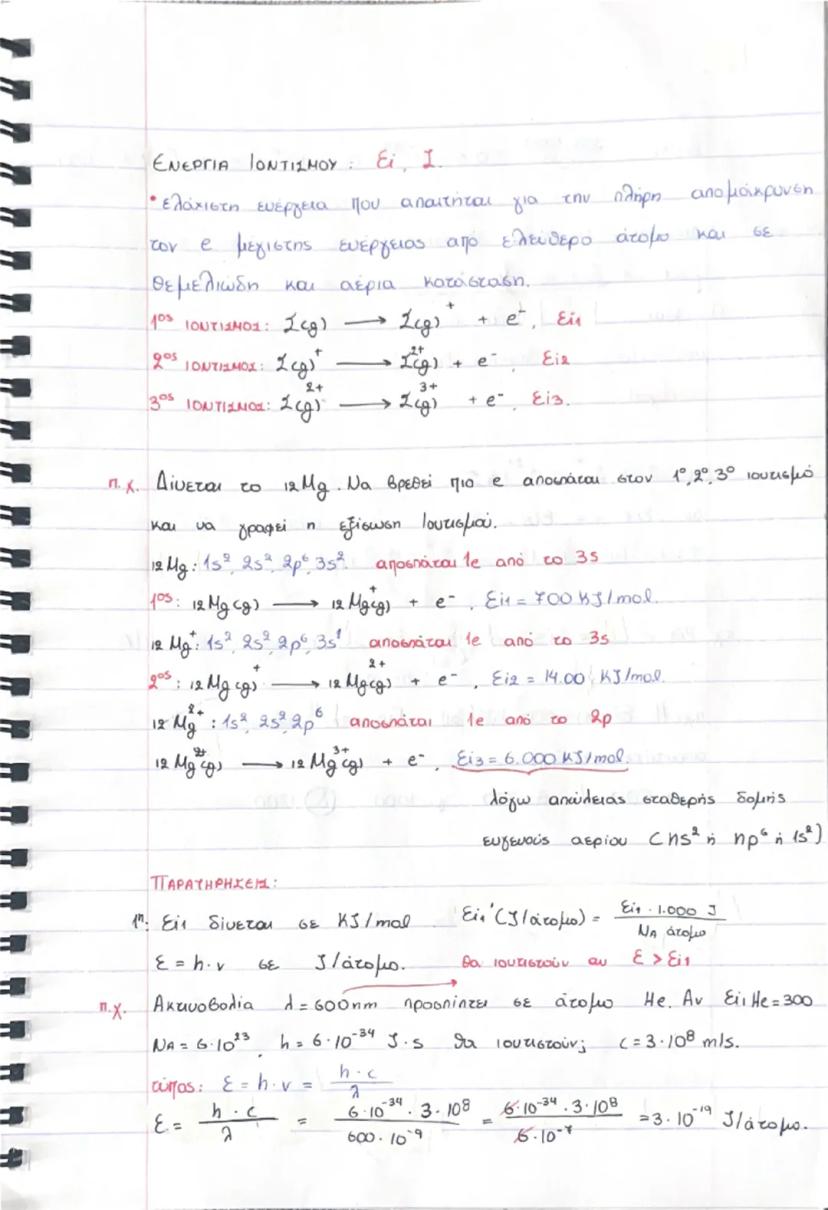 ΕΝΕΡΓΙΑ ΙΟΝΤΙΣΜΟΥ : Ei, I.
• ελάχιστη ενέργεια που απαιτήται για την πλήρη απομάκρυνση
του e μέγιστης ενέργειας από ελεύθερο άτομο και σε
θεμελιώδη και αέρια κατάσταση.
1ος ΙΟΝΤΙΣΜΟΣ: Σ(g) ⟶ Σ(g)⁺ + e⁻, Ei1
2ος ΙΟΝΤΙΣΜΟΣ: Σ(g)⁺ ⟶ Σ(g)²⁺ + e⁻, Ei2
3ος ΙΟΝΤΙΣΜΟΣ: Σ(g)²⁺ ⟶ Σ(g)³⁺ + e⁻, Ei3.
π.χ. Δίνεται το 12Mg. Να βρεθεί πιο e αποσπάται στον 1º, 2º, 3º ιοντισμό
και να γραφεί η εξίσωση Ιοντισμού.
12Mg: 1s², 2s², 2p⁶, 3s². αποσπάται 1e από το 3s
1ος: 12Mg(g) ⟶ 12Mg⁺(g) + e⁻, Ei1 = 700 KJ/mol.
12Mg⁺: 1s², 2s², 2p⁶, 3s¹ αποσπάται 1e από το 3s
2ος: 12Mg(g)⁺ ⟶ 12Mg(g)²⁺ + e⁻, Ei2 = 14.00 KJ/mol.
12Mg²⁺: 1s², 2s², 2p⁶ αποσπάται 1e από το 2p
12Mg²⁺(g) ⟶ 12Mg³⁺(g) + e⁻, Ei3 = 6.000 KJ/mol.
λόγω απώλειας σταθερής δομής
ευγενούς αερίου (ns² ή np⁶ ή 1s²)
ΠΑΡΑΤΗΡΗΣΕΙΣ:
1η: Ei1 δίνεται σε KJ/mol Ei1'(J/άτομο) = Ei1 · 1.000 J / NA άτομο
E = h·ν σε J/άτομο. θα ιοντιστούν αν E > Ei1
π.χ. Ακτινοβολία λ = 600nm προσπίπτει σε άτομο He. Αν Ei1He = 300
NA = 6·10²³, h = 6·10⁻³⁴ J·s θα ιοντιστούν; c = 3·10⁸ m/s.
τύπος: E = h·ν = h·c / λ
E = h·c / λ = 6·10⁻³⁴ · 3·10⁸ / 600·10⁻⁹ = 6·10⁻³⁴ · 3·10⁸ / 6·10⁻⁷ = 3·10⁻¹⁹ J/άτομο.